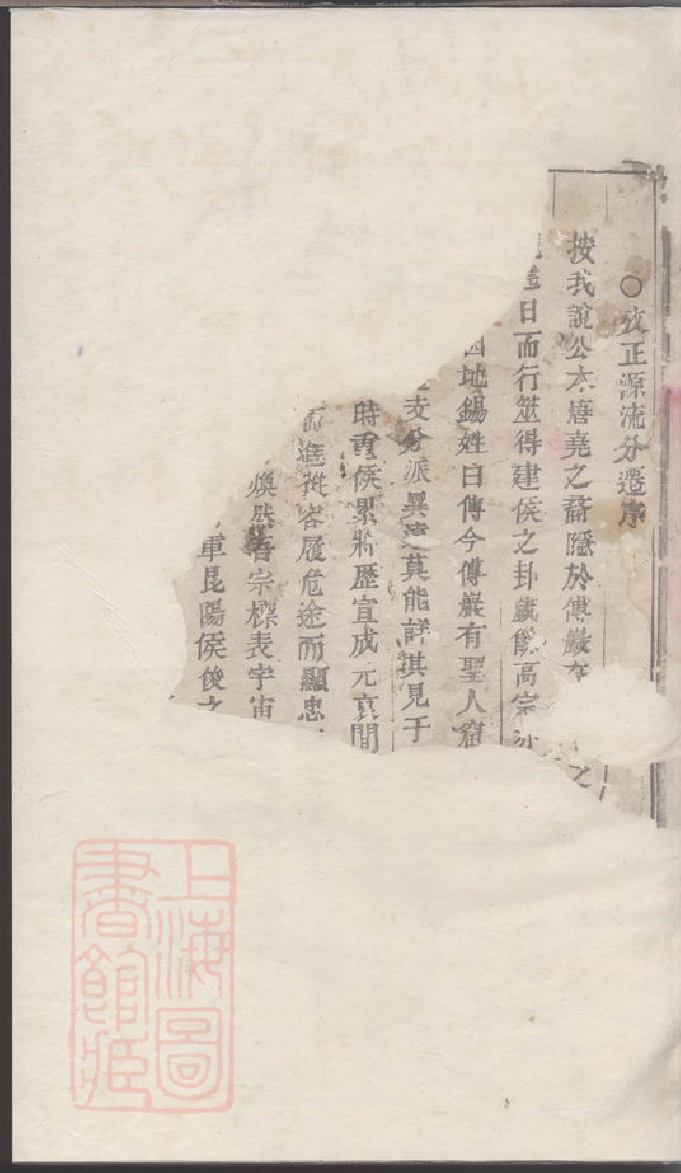 ○攷正源流分遷序
按我說公本唐堯之裔隱於傅巖
日而行筮得建侯之卦歲餘高宗
因地錫姓曰傅今傅巖有聖人窟
支分派異遠莫能詳其見于
時重侯累將歷宣成元哀間
進從容履危途而顯忠
煥然吾宗標表宇宙
軍昆陽侯俊之
上海圖
書館藏